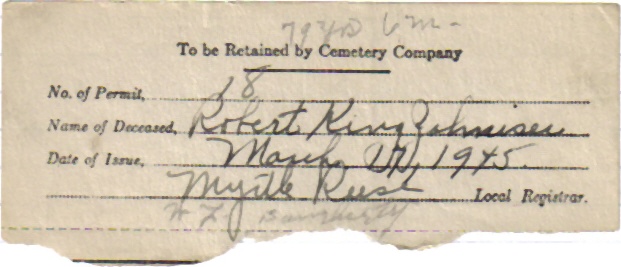 79 yrs 6 m -
To be Retained by Cemetery Company
No. of Permit, 18
Name of Deceased, Robert King Zahniser
Date of Issue, March 27, 1945.
Myrtle Reese Local Registrar.
Daugherty